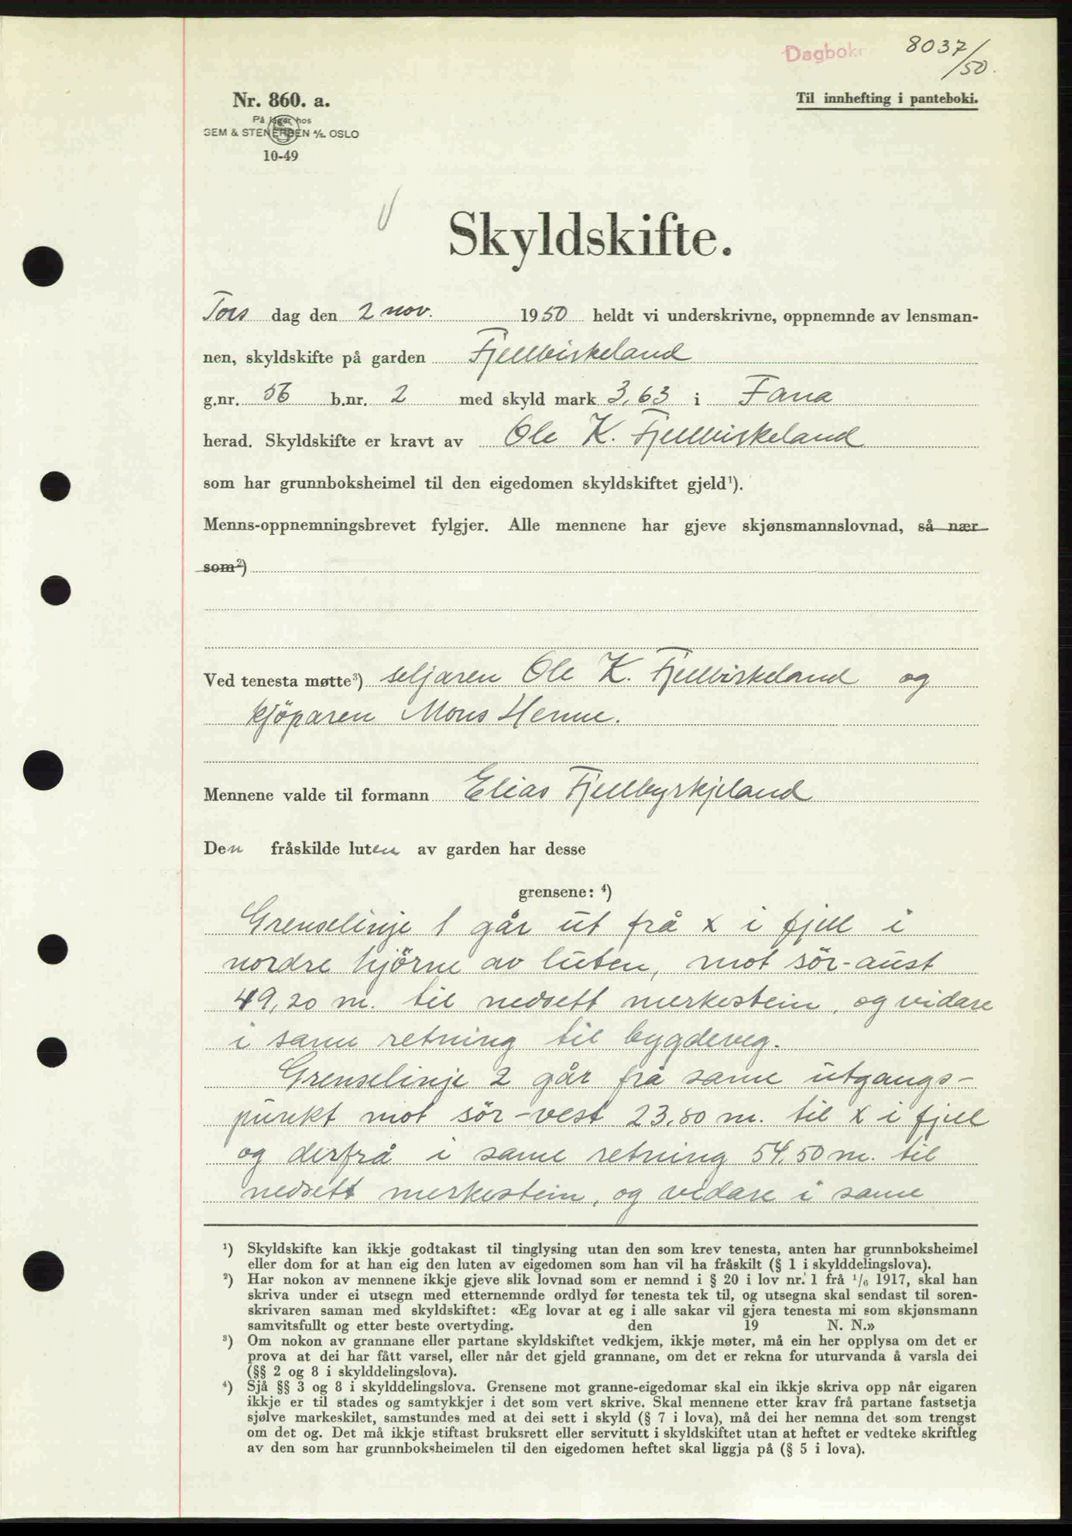 Dagbok 8037/50.
Nr. 860. a.
Til innhefting i panteboki.
På lager hos
SEM & STENERSEN A/S. OSLO
10-49
Skyldskifte.
Tors dag den 2 nov. 1950 heldt vi underskrivne, oppnemnde av lensman-
nen, skyldskifte på garden Fjellbirkeland
g.nr. 56 b.nr. 2 med skyld mark 3,63 i Fana
herad. Skyldskifte er kravt av Ole K. Fjellbirkeland
som har grunnboksheimel til den eigedomen skyldskiftet gjeld¹).
Menns-oppnemningsbrevet fylgjer. Alle mennene har gjeve skjønsmannslovnad, så nær
som²)
Ved tenesta møtte³) seljaren Ole K. Fjellbirkeland og
kjöparen Mons Henne.
Mennene valde til formann Elias Fjellbyrkjeland
Den fråskilde luten av garden har desse
grensene: ⁴)
Grenselinje 1 går ut frå x i fjell i
nordre hjörne av luten, mot sör-aust
49,20 m. til nedsett merkestein, og vidare
i same retning til bygdeveg.
Grenselinje 2 går frå same utgangs-
punkt mot sör-vest 23,80 m. til x i fjell
og derfrå i same retning 54,50 m. til
nedsett merkestein, og vidare i same
¹) Skyldskifte kan ikkje godtakast til tinglysing utan den som krev tenesta, anten har grunnboksheimel
eller dom for at han eig den luten av eigedomen som han vil ha fråskilt (§ 1 i skylddelingslova).
²) Har nokon av mennene ikkje gjeve slik lovnad som er nemnd i § 20 i lov nr. 1 frå ¹/₆ 1917, skal han
skriva under ei utsegn med etternemnde ordlyd før tenesta tek til, og utsegna skal sendast til soren-
skrivaren saman med skyldskiftet: «Eg lovar at eg i alle sakar vil gjera tenesta mi som skjønsmann
samvitsfullt og etter beste overtyding. den 19 N. N.»
³) Om nokon av grannane eller partane skyldskiftet vedkjem, ikkje møter, må ein her opplysa om det er
prova at dei har fått varsel, eller når det gjeld grannane, om det er rekna for uturvanda å varsla dei
(§§ 2 og 8 i skylddelingslova).
⁴) Sjå §§ 3 og 8 i skylddelingslova. Grensene mot granne-eigedomar skal ein ikkje skriva opp når eigaren
ikkje er til stades og samtykkjer i det som vert skrive. Skal mennene etter krav frå partane fastsetja
sjølve markeskilet, samstundes med at dei sett i skyld (§ 7 i lova), må dei her nemna det som trengst
om det og. Det må ikkje stiftast bruksrett eller servitutt i skyldskiftet utan at heftet er vedteke skriftleg
av den som har grunnboksheimelen til den eigedomen heftet skal liggja på (§ 5 i lova).